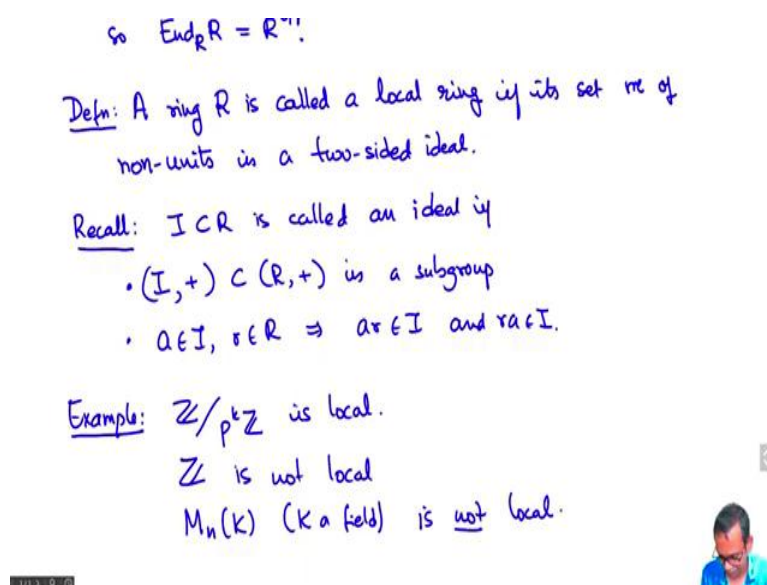 so End_R R = R^op.
Defn: A ring R is called a local ring if its set m of
non-units is a two-sided ideal.
Recall: I ⊂ R is called an ideal if
• (I,+) ⊂ (R,+) is a subgroup
• a∈I, r∈R ⇒ ar∈I and ra∈I.
Example: ℤ/p^kℤ is local.
ℤ is not local
M_n(K) (K a field) is not local.